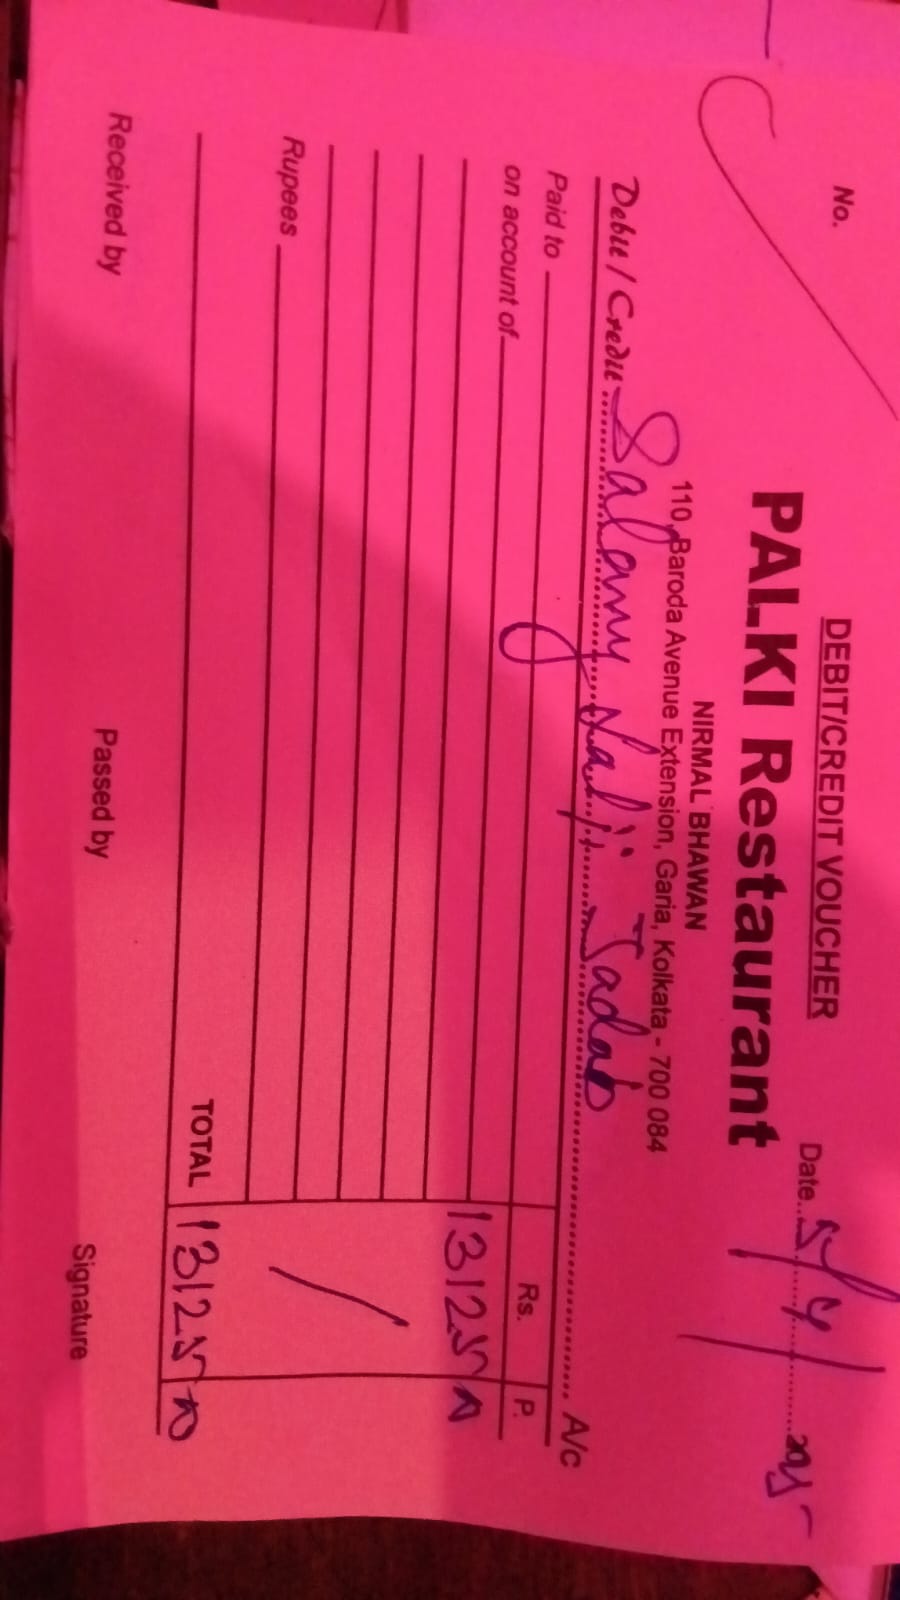 DEBIT/CREDIT VOUCHER
No.
Date 5/4/2025
PALKI Restaurant
NIRMAL BHAWAN
110, Baroda Avenue Extension, Garia, Kolkata - 700 084
Debit / Credit Salary Lalji Jadab A/c
Paid to
Rs. P.
on account of
13125
Rupees
TOTAL 13125
Received by Passed by Signature